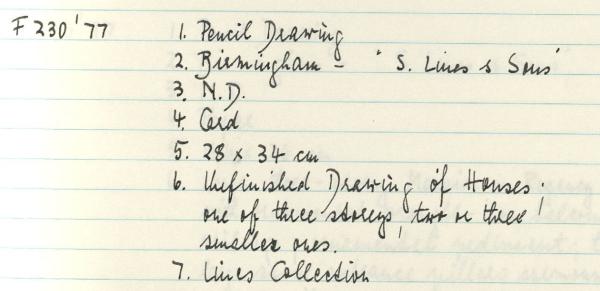 F 230 '77 1. Pencil Drawing
2. Birmingham – "S. Lines & Sons"
3. N.D.
4. Card
5. 28 x 34 cm
6. Unfinished Drawing of Houses;
one of three storeys, two or three
smaller ones.
7. Lines Collection